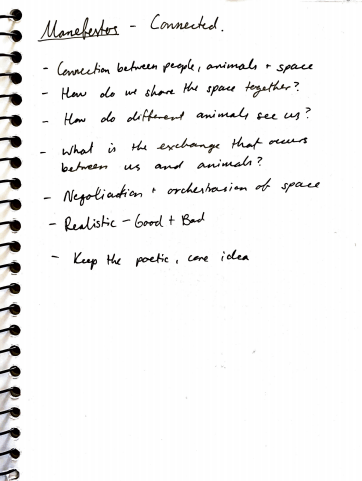 Manefestos - Connected.
- Connection between people, animals + space
- How do we share the space together?
- How do different animals see us?
- What is the exchange that occurs
between us and animals?
- Negotiation + orchestrasion of space
- Realistic - Good + Bad
- Keep the poetic, core idea